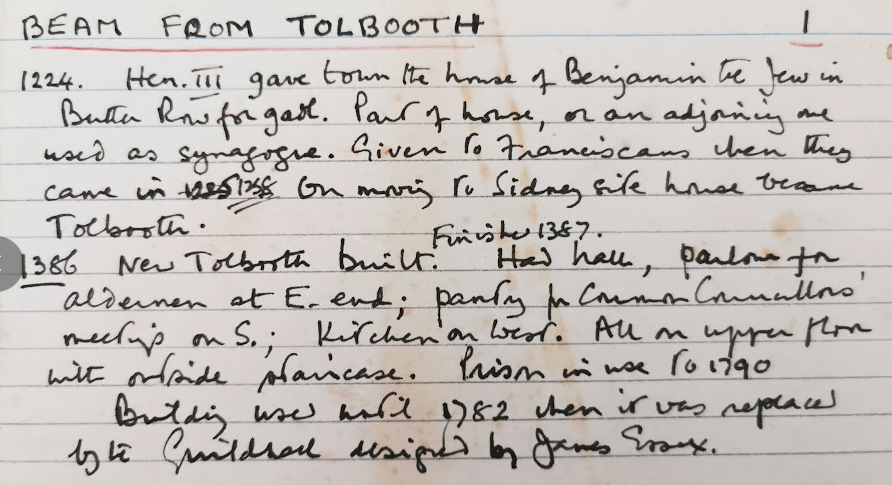 BEAM FROM TOLBOOTH 1
1224. Hen. III gave town the house of Benjamin the Jew in
Butter Row for gaol. Part of house, or an adjoining one
used as synagogue. Given to Franciscans when they
came in 1238 On moving to Sidney site house became
Tolbooth.
Finished 1387.
1386 New Tolbooth built. Had hall, parlour for
aldermen at E. end; pantry for Common Councillors'
meetings on S.; Kitchen on West. All on upper floor
with outside staircase. Prison in use to 1790
Building used until 1782 when it was replaced
by the Guildhall designed by James Essex.